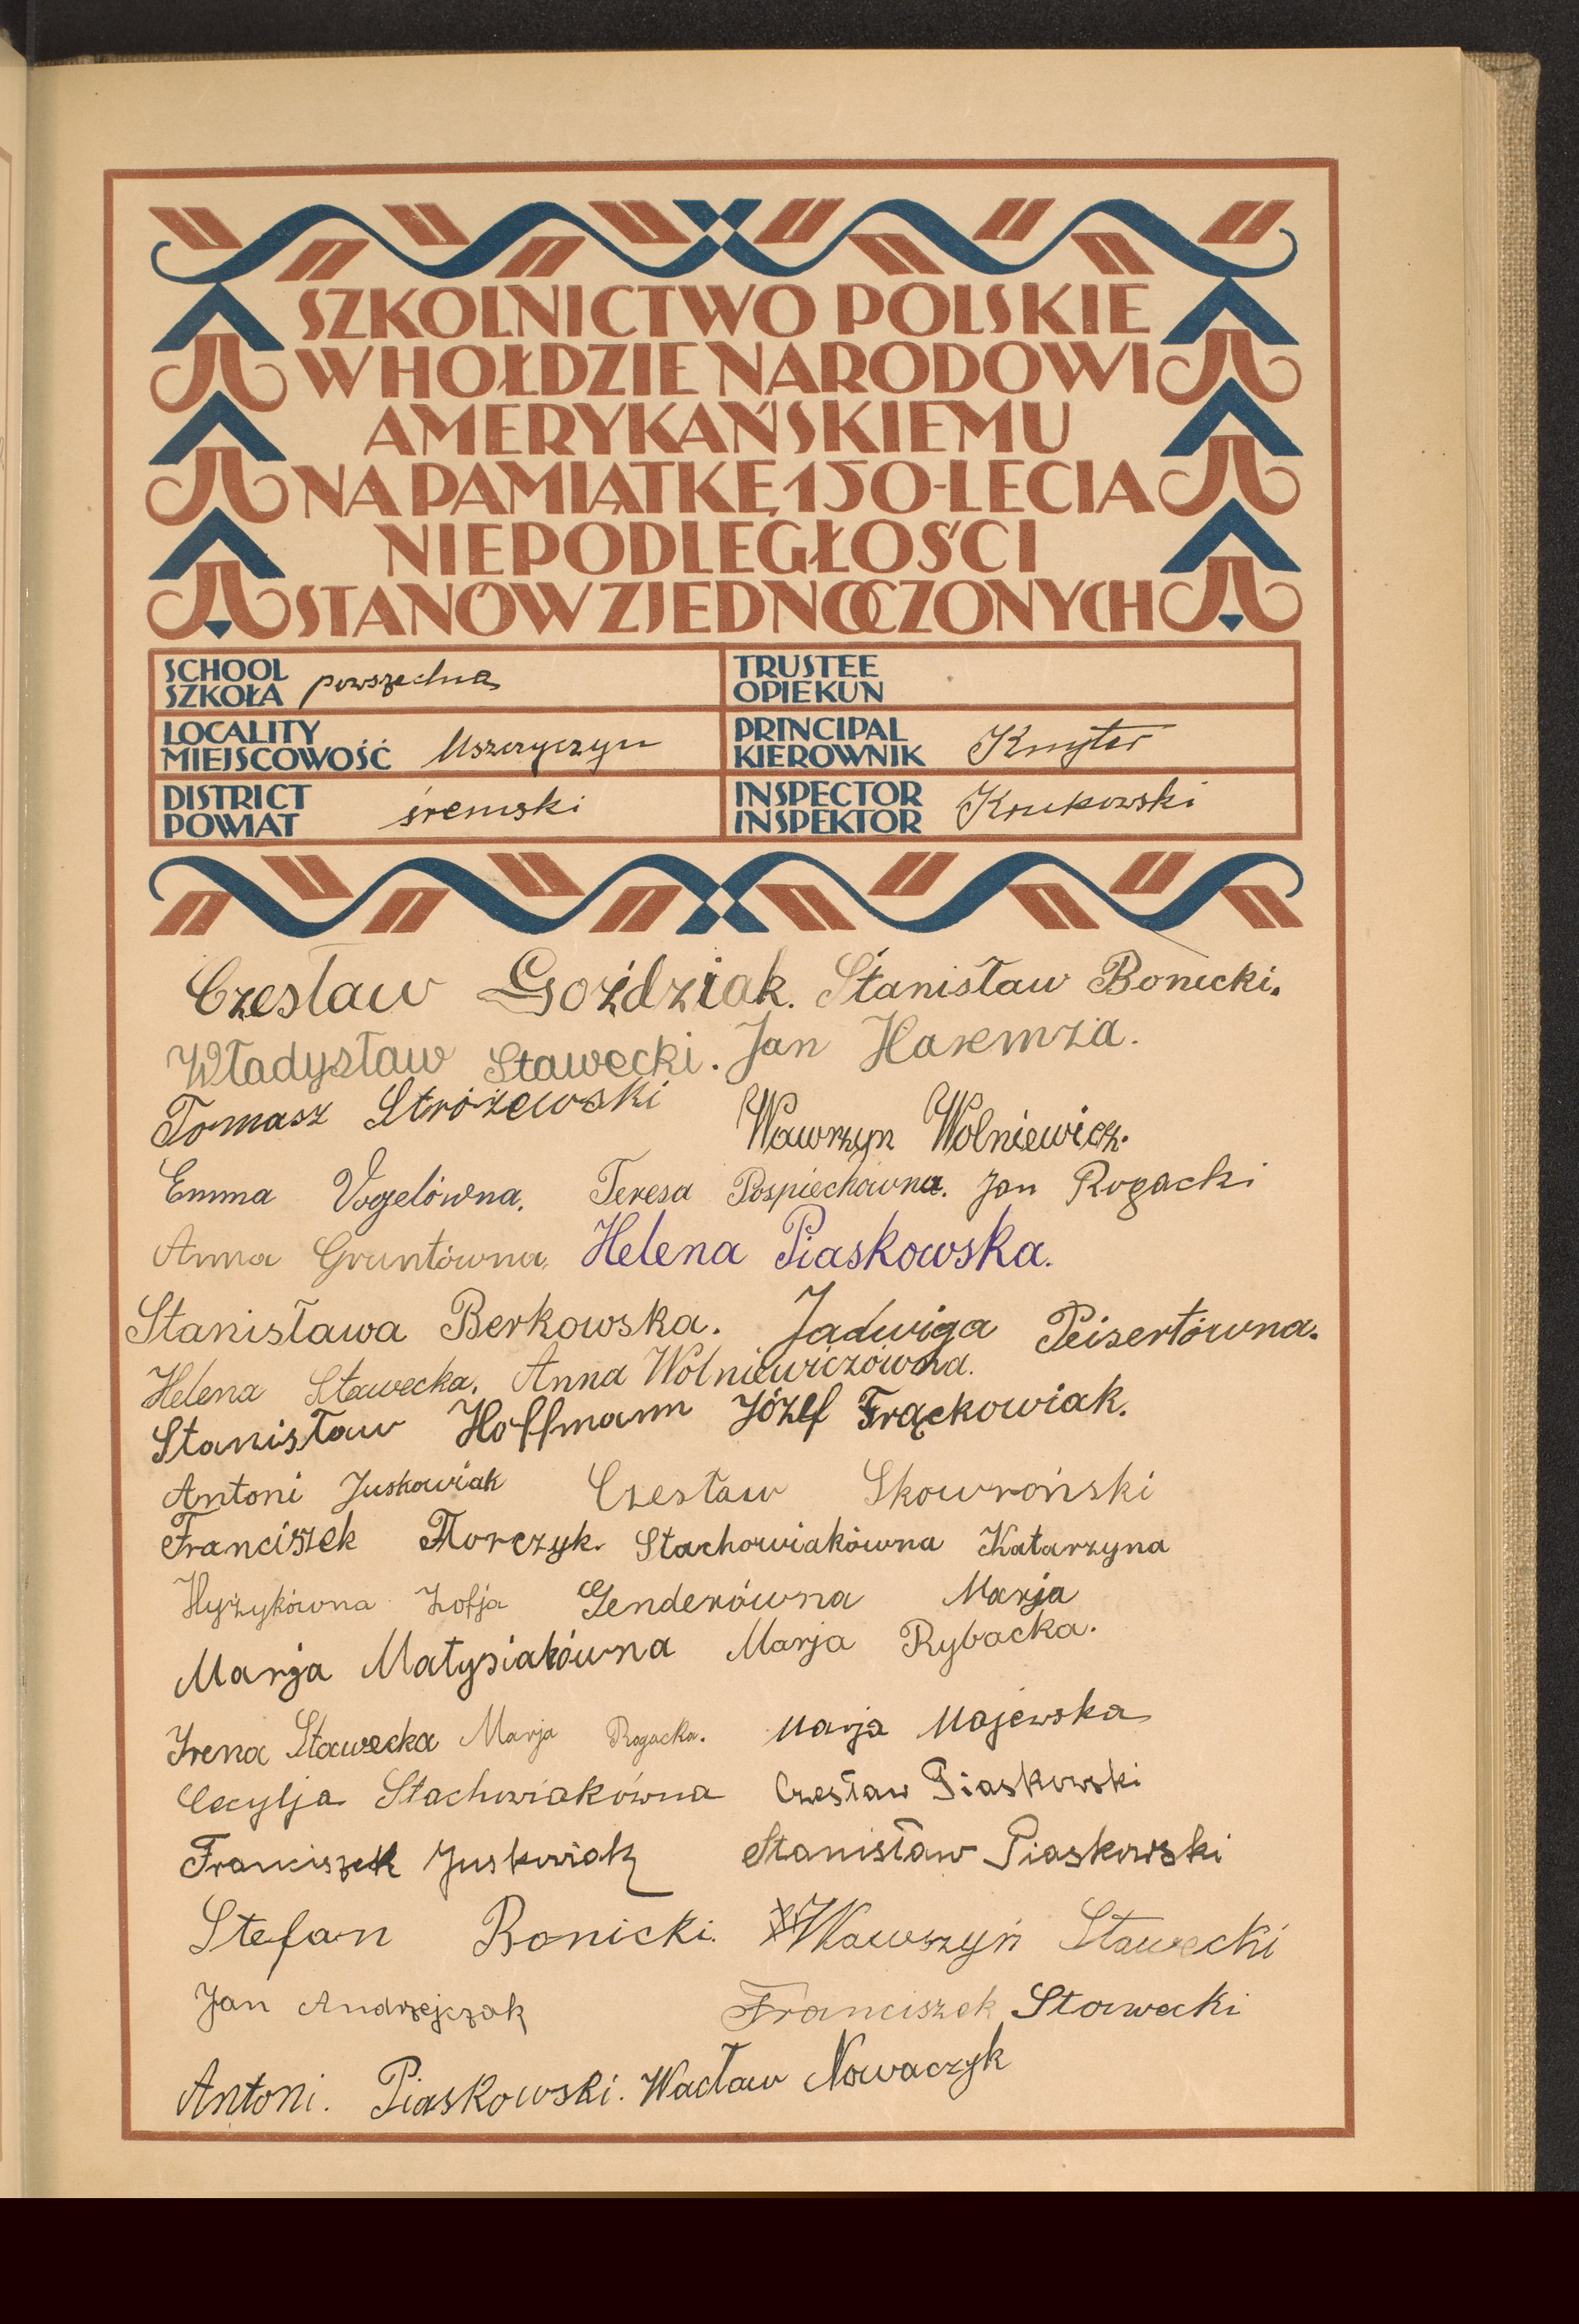 SZKOLNICTWO POLSKIE
W HOŁDZIE NARODOWI
AMERYKAŃSKIEMU
NA PAMIĄTKĘ 150-LECIA
NIEPODLEGŁOŚCI
STANÓW ZJEDNOCZONYCH
SCHOOL
SZKOŁA powszechna
TRUSTEE
OPIEKUN
LOCALITY
MIEJSCOWOŚĆ Mszczyczyn
PRINCIPAL
KIEROWNIK
DISTRICT
POWIAT śremski
INSPECTOR
INSPEKTOR Krukowski
Czesław Goździak. Stanisław Bonicki.
Władysław Stawecki. Jan Haremza.
Tomasz Stróżewski Wawrzyn Wolniewicz.
Emma Vogelówna. Teresa Pospiechówna. Jan Rogacki
Anna Gruntówna. Helena Piaskowska.
Stanisława Berkowska. Jadwiga Peisertówna.
Helena Stawecka. Anna Wolniewiczówna.
Stanisław Hoffmann Józef Frąckowiak.
Antoni Juskowiak Czesław Skowroński
Franciszek Florczyk. Stachowiakówna Katarzyna
Hyżykówna Zofja Genderówna Marja
Marja Matysiakówna Marja Rybacka.
Irena Stawecka Marja Rogacka. Marja Majewska
Cecylja Stachowiakówna Czesław Piaskowski
Franciszek Juskowiak Stanisław Piaskowski
Stefan Bonicki. Wawrzyń Stawecki
Jan Andrzejczak Franciszek Stawecki
Antoni. Piaskowski. Wacław Nowaczyk